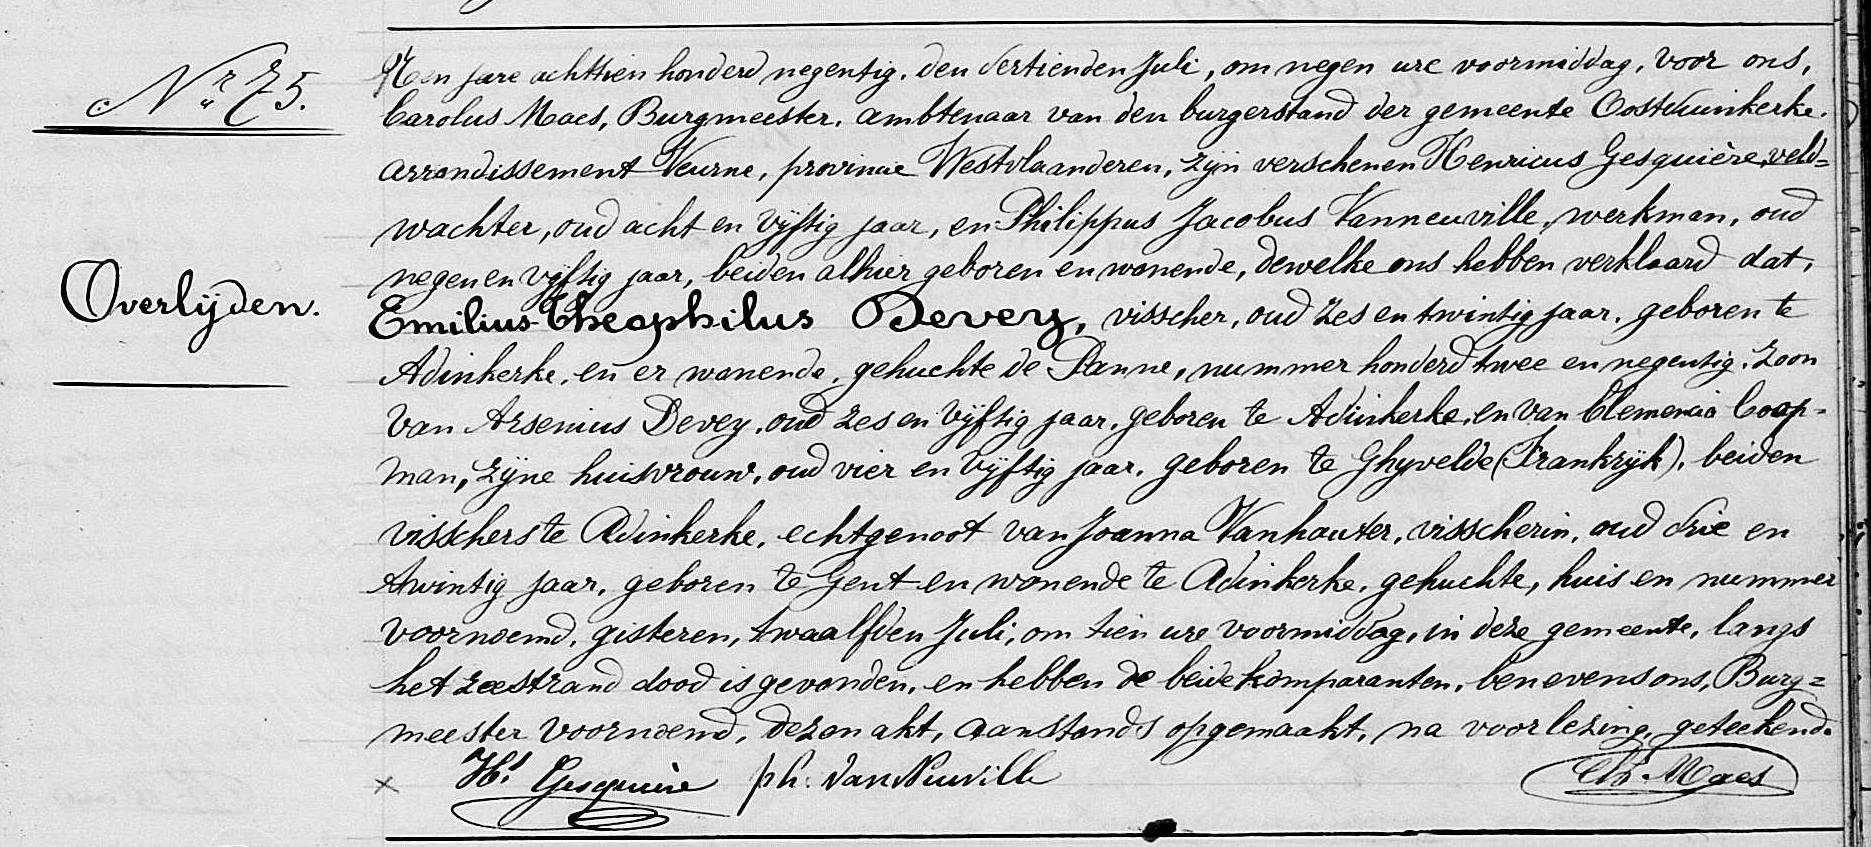 Nr 75.
Ten jare achttien honderd negentig, den dertienden Juli, om negen ure voormiddag, voor ons,
Carolus Maes, Burgmeester, ambtenaar van den burgerstand der gemeente Oostduinkerke,
arrondissement Veurne, provincie Westvlaanderen, zijn verschenen Henricus Gesquière, veld=
wachter, oud acht en vijftig jaar, en Philippus Jacobus Vanneuville, werkman, oud
negen en vijftig jaar, beiden alhier geboren en wonende, dewelke ons hebben verklaard dat,
Overlijden.
Emilius Theophilus Devey, visscher, oud zes en twintig jaar, geboren te
Adinkerke, en er wonende, gehuchte de Panne, nummer honderd twee en negentig, zoon
van Arsenius Devey, oud zes en vijftig jaar, geboren te Adinkerke, en van Clemencia Coop-
man, zijne huisvrouw, oud vier en vijftig jaar, geboren te Ghyvelde (Frankrijk), beiden
visschers te Adinkerke, echtgenoot van Joanna Vanhouter, visscherin, oud drie en
twintig jaar, geboren te Gent en wonende te Adinkerke, gehuchte, huis en nummer
voornoemd, gisteren, twaalfden Juli, om tien ure voormiddag, in deze gemeente, langs
het zeestrand dood is gevonden, en hebben de beide komparanten, benevens ons, Burg=
meester voornoemd, dezen akt, aanstonds opgemaakt, na voorlezing, geteekend.
x Hs Gesquière ph. VanNeuville Chs Maes